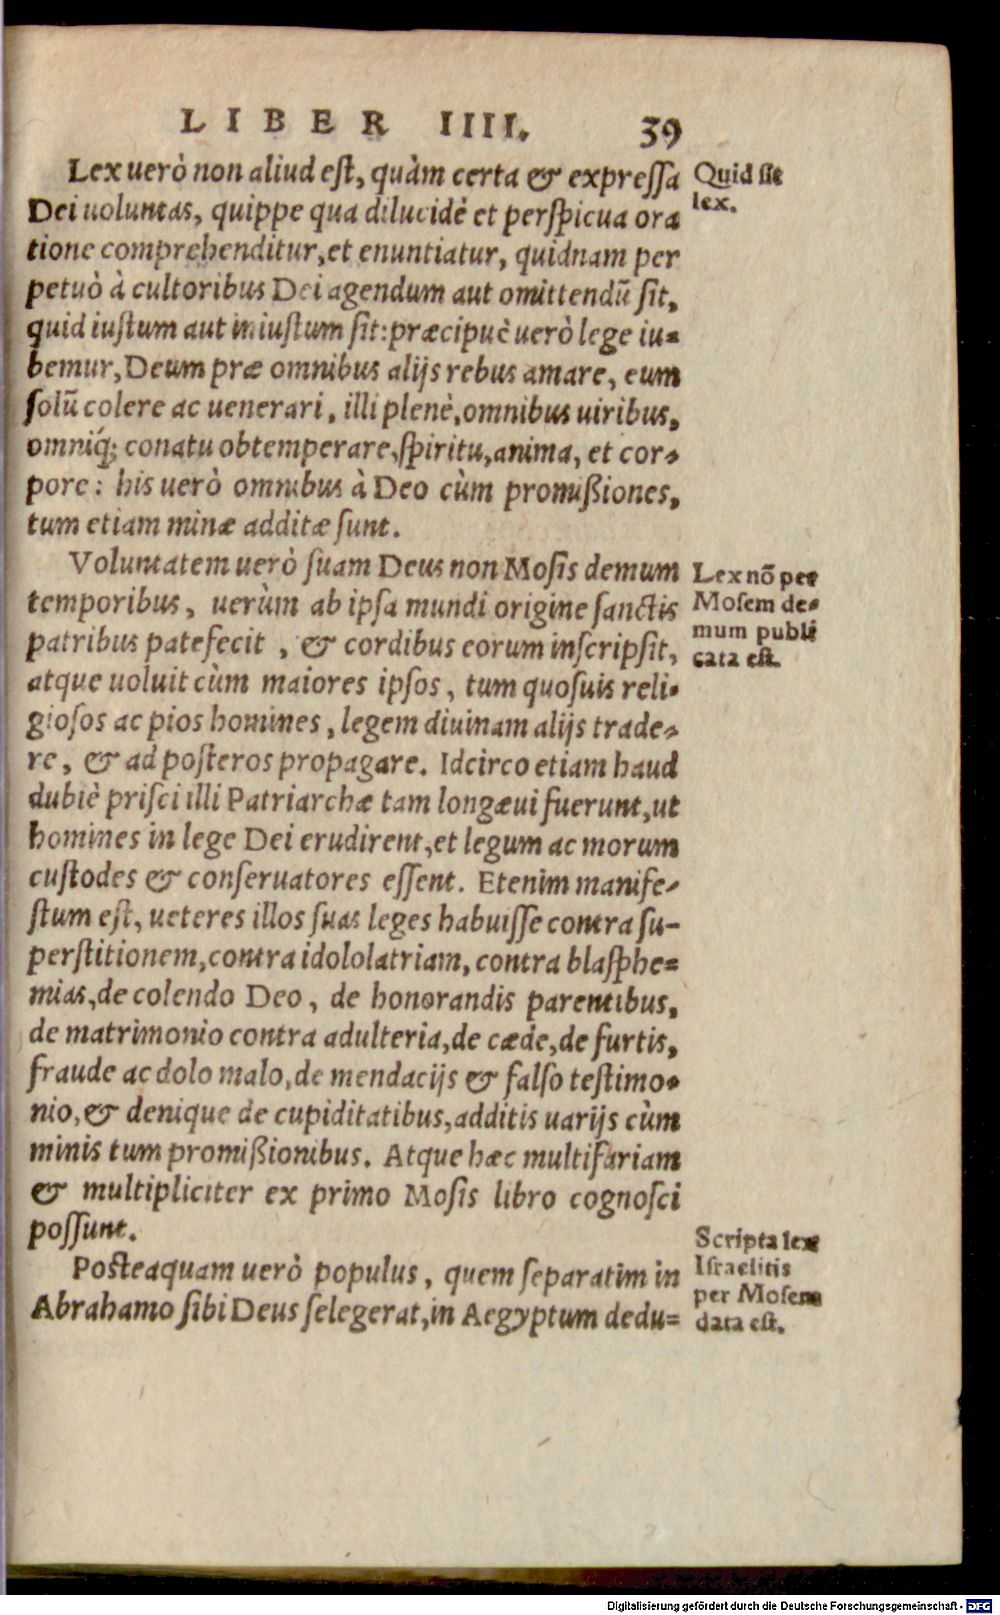 LIBER IIII. 39
Lex uerò non aliud est, quàm certa & expressa
Dei uoluntas, quippe qua dilucidè et perspicua ora
tione comprehenditur, et enuntiatur, quidnam per
petuò à cultoribus Dei agendum aut omittendũ sit,
quid iustum aut iniustum sit: præcipuè uerò lege iu=
bemur, Deum præ omnibus alijs rebus amare, eum
solũ colere ac uenerari, illi plenè, omnibus uiribus,
omniq́; conatu obtemperare, spiritu, anima, et cor=
pore: his uerò omnibus à Deo cùm promißiones,
tum etiam minæ additæ sunt.
Quid sit
lex.
Voluntatem uerò suam Deus non Mosis demum
temporibus, uerùm ab ipsa mundi origine sanctis
patribus patefecit, & cordibus eorum inscripsit,
atque uoluit cùm maiores ipsos, tum quosuis reli=
giosos ac pios homines, legem diuinam alijs trade=
re, & ad posteros propagare. Idcirco etiam haud
dubiè prisci illi Patriarchæ tam longæui fuerunt, ut
homines in lege Dei erudirent, et legum ac morum
custodes & conseruatores essent. Etenim manife=
stum est, ueteres illos suas leges habuisse contra su-
perstitionem, contra idololatriam, contra blasphe=
mias, de colendo Deo, de honorandis parentibus,
de matrimonio contra adulteria, de cæde, de furtis,
fraude ac dolo malo, de mendacijs & falso testimo=
nio, & denique de cupiditatibus, additis uarijs cùm
minis tum promißionibus. Atque hæc multifariam
& multipliciter ex primo Mosis libro cognosci
possunt.
Lex nõ per
Mosem de=
mum publi
cata est.
Posteaquam uerò populus, quem separatim in
Abrahamo sibi Deus selegerat, in Aegyptum dedu=
Scripta lex
Israelitis
per Mosem
data est.
Digitalisierung gefördert durch die Deutsche Forschungsgemeinschaft - DFG